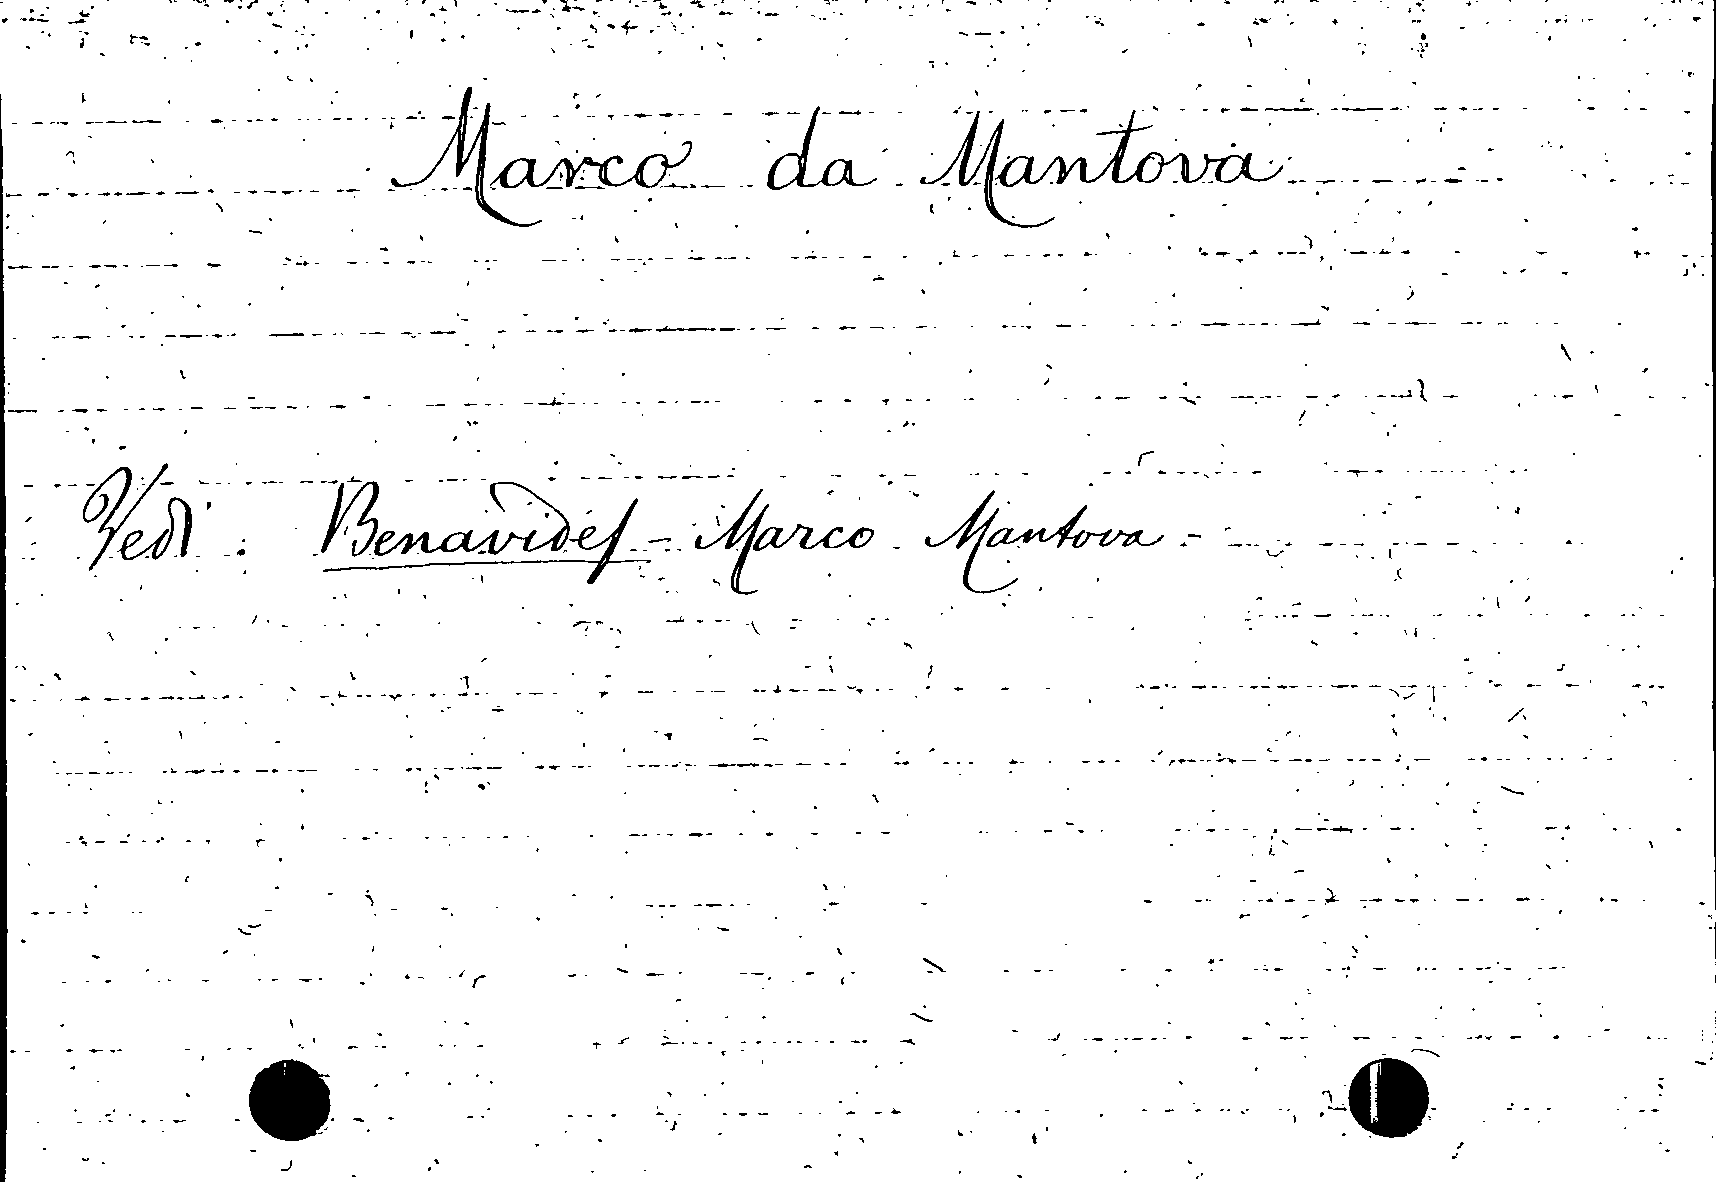 Marco da Mantova
Vedi: Benavides - Marco Mantova -